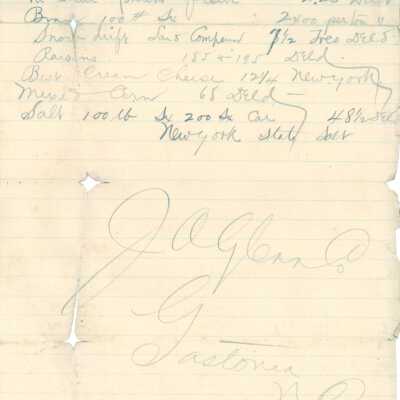 Bran 100 # Sx 24.00 per ton "
Snow drift Lard Compound 7½ Tres Deld
Raisins 185 & 195 Deld
Best Cream Cheese 12¼ New York
Mixed Corn 68 Deld
Salt 100 lb Sx 200 Sx Car 48½ Deld
New York State Salt
J A Glenn Co
G
Gastonia
N C